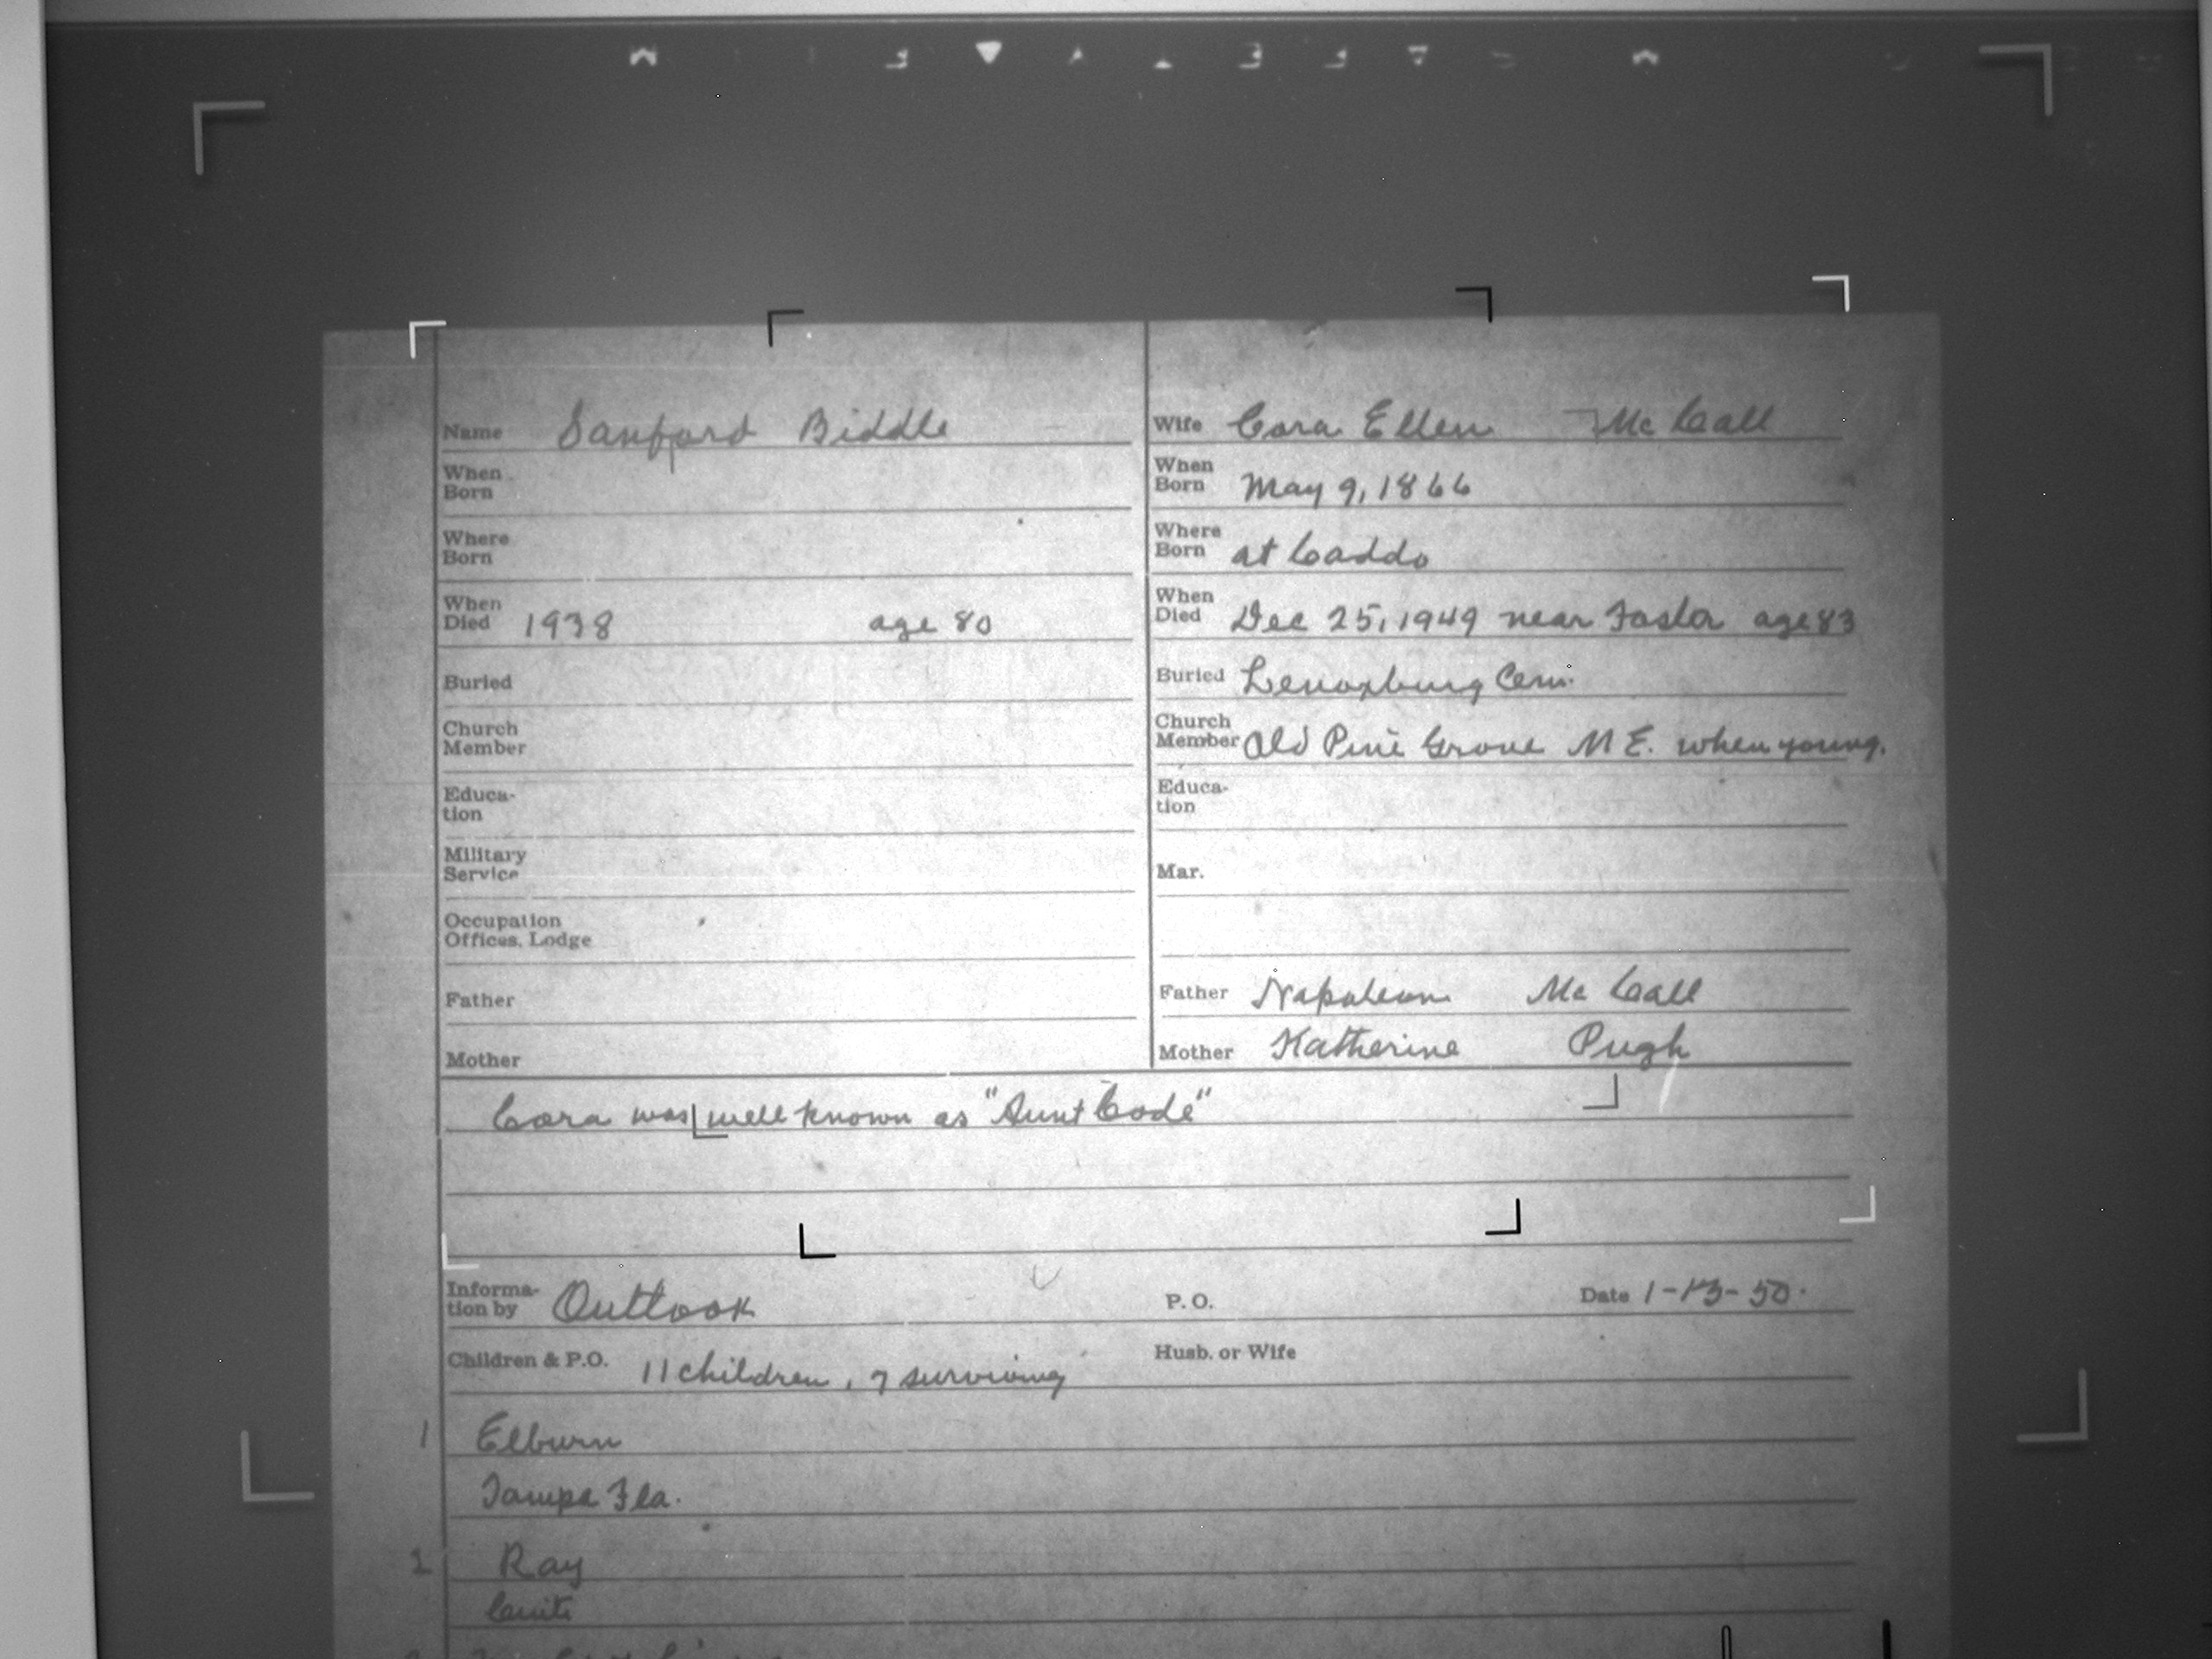 Name Sanford Biddle
When Born
Where Born
When Died 1938 age 80
Buried
Church Member
Educa-tion
Military Service
Occupation Offices, Lodge
Father
Mother
Wife Cora Ellen McCall
When Born May 9, 1866
Where Born at Caddo
When Died Dec 25, 1949 near Foster age 83
Buried Lenoxburg Cem.
Church Member Old Pine Grove M E. when young.
Educa-tion
Mar.
Father Napoleon McCall
Mother Katherine Pugh
Cora was well known as "Aunt Code"
Informa-tion by Outlook P. O. Date 1-13-50.
Children & P.O. 11 children, 7 surviving Husb. or Wife
1 Elburn
Tampa Fla.
2 Ray